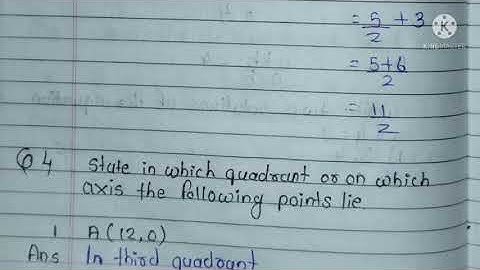 = 5/2 + 3
= 5+6/2
= 11/2
Q4 state in which quadrant or on which
axis the following points lie.
1 A(12,0)
Ans In third quadrant